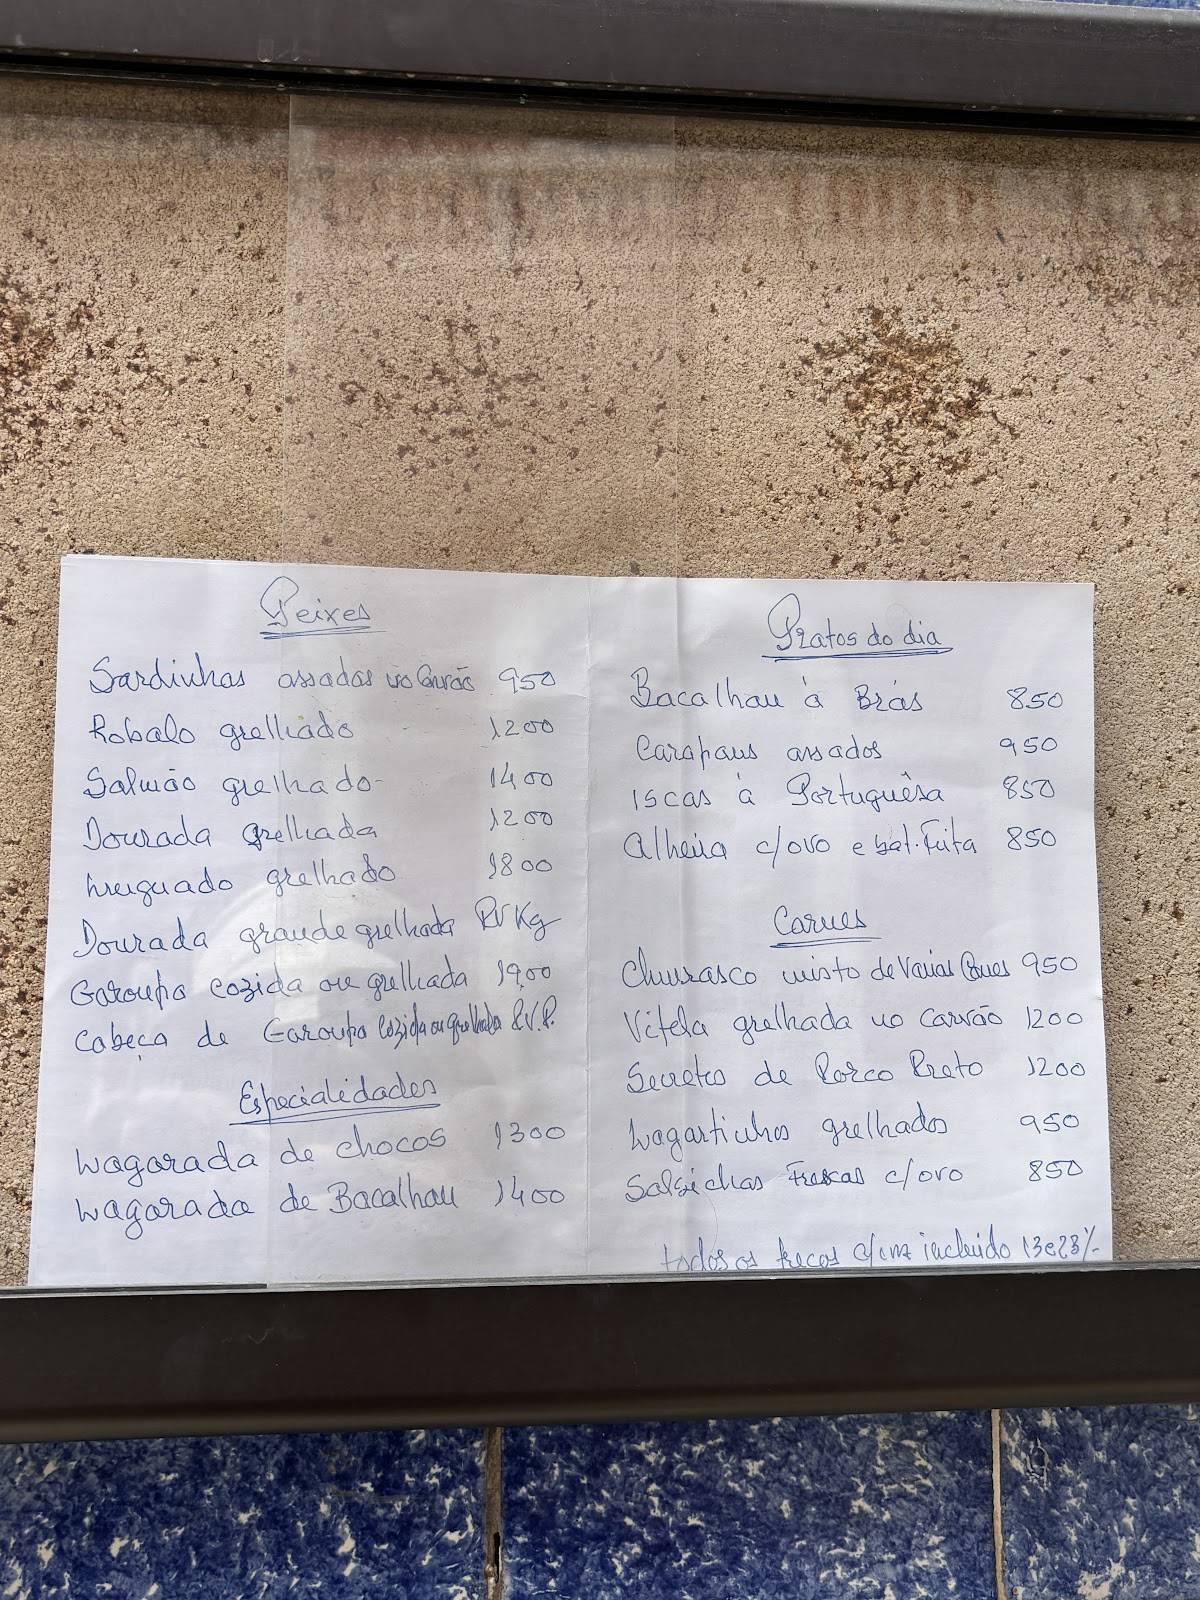 Peixes
Sardinhas assadas no Carvão 950
Robalo grelhado 1200
Salmão grelhado 1400
Dourada grelhada 1200
Linguado grelhado 1800
Dourada grande grelhada PV Kg
Garoupa cozida ou grelhada 1900
Cabeça de Garoupa Cozida ou grelhada P.V.P.
Especialidades
Lagarada de chocos 1300
Lagarada de Bacalhau 1400
Pratos do dia
Bacalhau à Brás 850
Carapaus assados 950
Iscas à Portuguêsa 850
Alheira c/ovo e bat. Frita 850
Carnes
Churrasco misto de Várias Carnes 950
Vitela grelhada no Carvão 1200
Secretos de Porco Preto 1200
Lagartinhos grelhados 950
Salsichas Frescas c/ovo 850
todos os preços c/iva incluido 13e23%